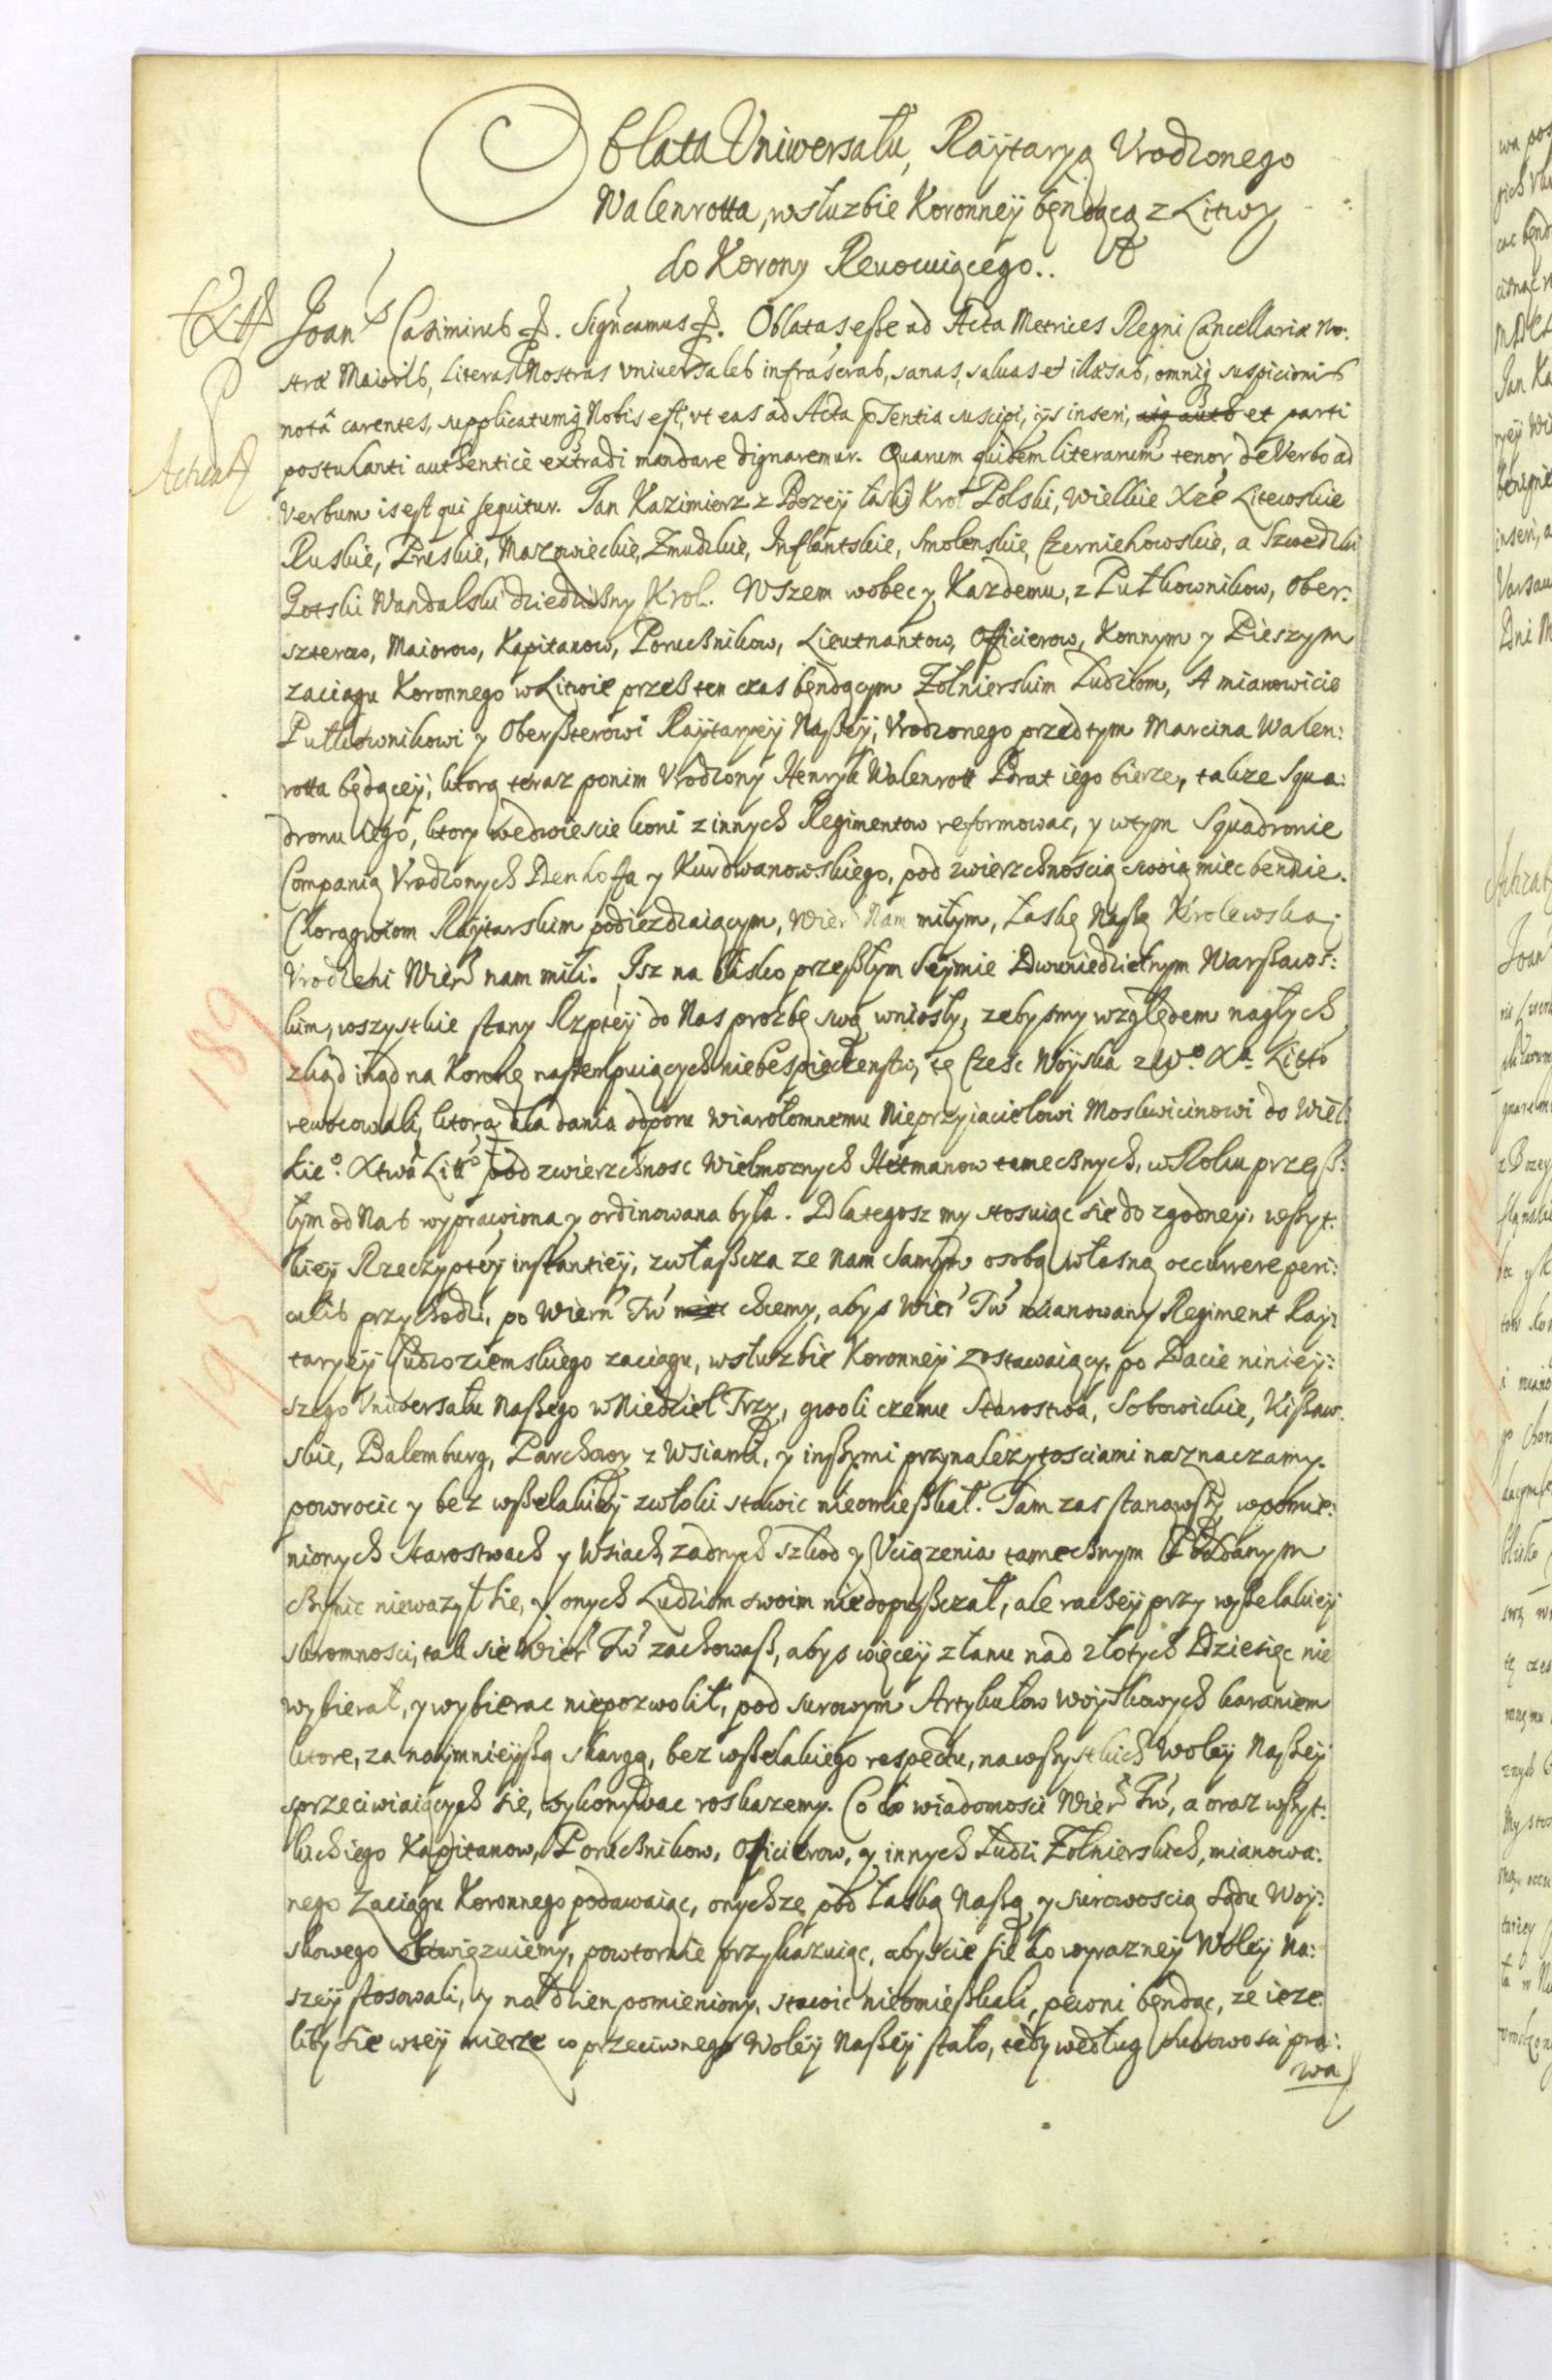 Oblata Uniwersału, Raÿtarya Vrodzonego
Walenrotta, w służbie Koronneÿ będącą z Litwy
do Korony Reuocuiącego..
Joans Casimirus &. Signcamus &. Oblatas esse ad Acta Metrices Regni Cancellariæ No:
stræ Maioris, Literas Nostras vniuersales infrascras, sanas, saluas et illæsas, omniq suspicionis
notâ carentes, supplicatumq Nobis est, vt eas ad Acta psentia suscipi, ijs inseri, et parti
postulanti authenticè extradi mandare dignaremur. Quarum quidem literarum tenor de Verbo ad
Verbum is est qui sequitur. Jan Kazimierz z Bozeÿ łaski Krol Polski, Wielkie Xże Litewskie
Ruskie, Pruskie, Mazowieckie, Zmudzkie, Inflantskie, Smolenskie, Czerniehowskie, a Szwedzki
Gotski Wandalski dziedziczny Krol. Wszem wobec y Kazdemu, z Pułkownikow, Ober:
szterow, Maiorow, Kapitanow, Porucznikow, Lieutnantow, Officierow, Konnym y Pieszym
zaciągu Koronnego w Litwie przez ten czas będącym Zołnierskim Ludziom, A mianowicie
Pułkownikowi y Oberszterowi Raÿtaryeÿ Naszeÿ, Vrodzonego przed tym Marcina Walen:
rotta będąceÿ, ktorą teraz ponim Vrodzony Henryk Walenrott Brat iego bierze, takze Squa:
dronu iego, ktory wedwiescie koni z innych Regimentow reformowac, y wtym Squadronie
Companią Vrodzonych Denhoffa y Kurdwanowskiego, pod zwierzchnoscią swoią miec bendzie.
Chorągwiom Raÿtarskim podiezdzaiącym, Wier Nam miłym, Łaskę Naszą Krolewską
Vrodzeni Wier nam mili. Isz na blisko przeszłym Seÿmie Dwuniedzielnym Warszaws:
kim, wszystkie stany Rzpteÿ do Nas prozbę swą wniosły, zebysmy względem nagłych
zkąd inąd na Koronę następuiących niebespieczenstw, tę Częsc Woÿska z W° Xa Litto
rewocowali, ktora dla dania odporu wiarołomnemu Nieprzyiacielowi Moskwicinowi do Wiel:
kie° Xtwa Litt° pod zwierzchnosc Wielmoznych Hetmanow tamecznych, w Roku przesz:
łym od Nas wyprawiona y ordinowana była. Dlategosz my stosuiąc sie do zgodney, wszyt:
kieÿ Rzeczypteÿ instantieÿ, zwłaszcza ze nam samym osobą własną occurrere peri:
culis przychodzi, po Wiern Tw chcemy, abys Wier Tw mianowany Regiment Ray:
taryeÿ Cudzoziemskiego zaciągu, w służbie Koronneÿ zostawaiący, po Dacie niniey:
szego Vniuersału Naszego w Niedziel Trzy, gwoli czemu Starostwa, Sobowickie, Kiszaw:
skie, Balemburg, Parchowy z Wsiami, y inszymi przynalezytosciami naznaczamy.
powrocic y bez wszelakieÿ zwłoki stawic nieomieszkał. Tam zas stanąwszy wpomie:
nionych Starostwach y Wsiach, zadnych szkod y Vciązenia tamecznym Poddanym
czynic niewazył sie, y onych Ludziom swoim niedopuszczał, ale raczeÿ przy wszelakieÿ
skromnosci, tak sie Wier Tw zachowasz, abys więceÿ z łanu nad złotych Dziesięc nie
wybierał, y wybierac niepozwolił, pod surowym Artykułow woÿskowych karaniem
ktore, za naÿmnieÿszą skargą, bez wszelakiego respectu, nawszystkich Woleÿ Naszeÿ
sprzeciwiaiących sie, wykonywac roskazemy. Co do wiadomosci Wier Tw, a oraz wszyt:
kich iego Kapitanow, Porucznikow, Officierow, y innych Ludzi Zołnierskich, mianowa:
nego Zaciągu Koronnego podawaiąc, onychze pod łaską Naszą y surowoscią Sądu Woÿ:
skowego obowięzuiemy, powtornie przykazuiąc, abyscie sie do wyrazneÿ Woleÿ Na:
szeÿ stosowali, y na dzien pomieniony, stawic nieomieszkali, pewni będąc, ze ieze:
liby sie wteÿ mierze co przeciwnego Woleÿ Naszeÿ stało, tedy według surowosci pra:
wa